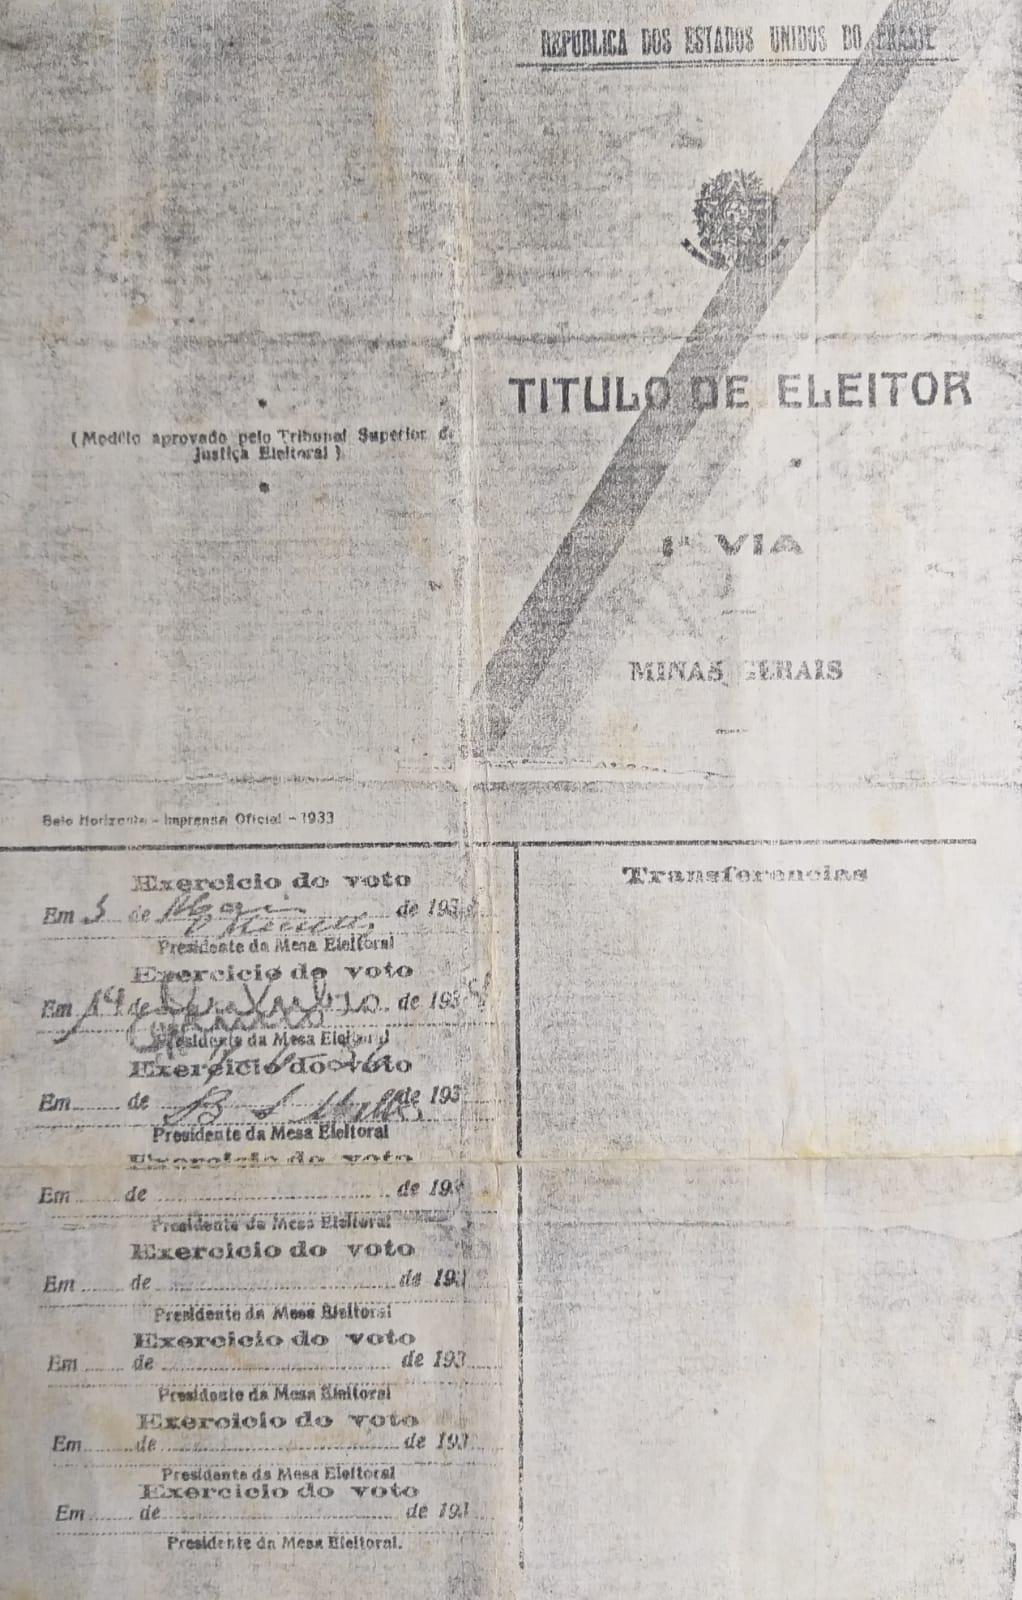 REPUBLICA DOS ESTADOS UNIDOS DO BRASIL
TITULO DE ELEITOR
(Modêlo aprovado pelo Tribunal Superior de
Justiça Eleitoral)
1ª VIA
MINAS GERAIS
Belo Horizonte - Imprensa Oficial - 1933
Exercicio do voto
Em 3 de Maio de 193
Presidente da Mesa Eleitoral
Exercicio do voto
Em 14 de de 193
Presidente da Mesa Eleitoral
Exercicio do voto
Em de de 193
Presidente da Mesa Eleitoral
Exercicio do voto
Em de de 193
Presidente da Mesa Eleitoral
Exercicio do voto
Em de de 193
Presidente da Mesa Eleitoral
Exercicio do voto
Em de de 193
Presidente da Mesa Eleitoral
Exercicio do voto
Em de de 193
Presidente da Mesa Eleitoral
Exercicio do voto
Em de de 193
Presidente da Mesa Eleitoral.
Transferencias